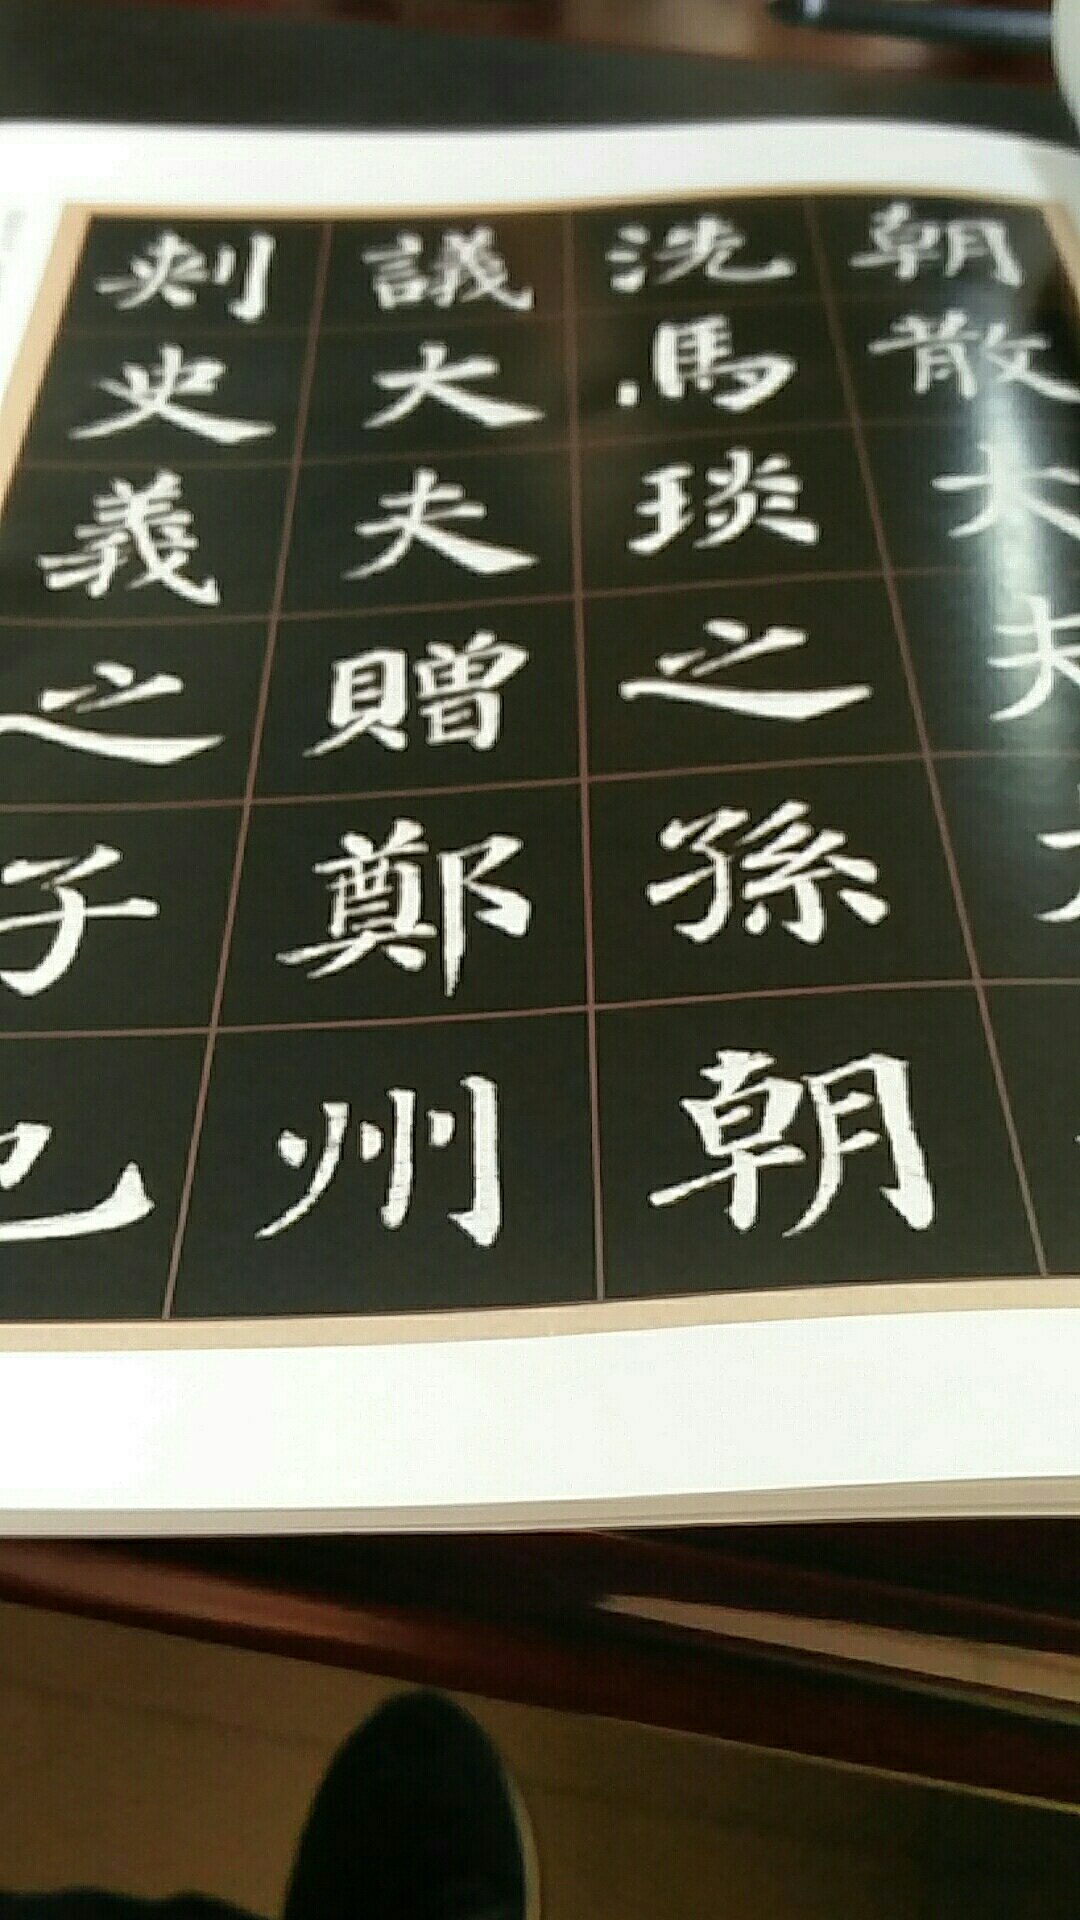 朝散大夫
洗馬琰之孫朝
議大夫贈鄭州
刺史義之子也